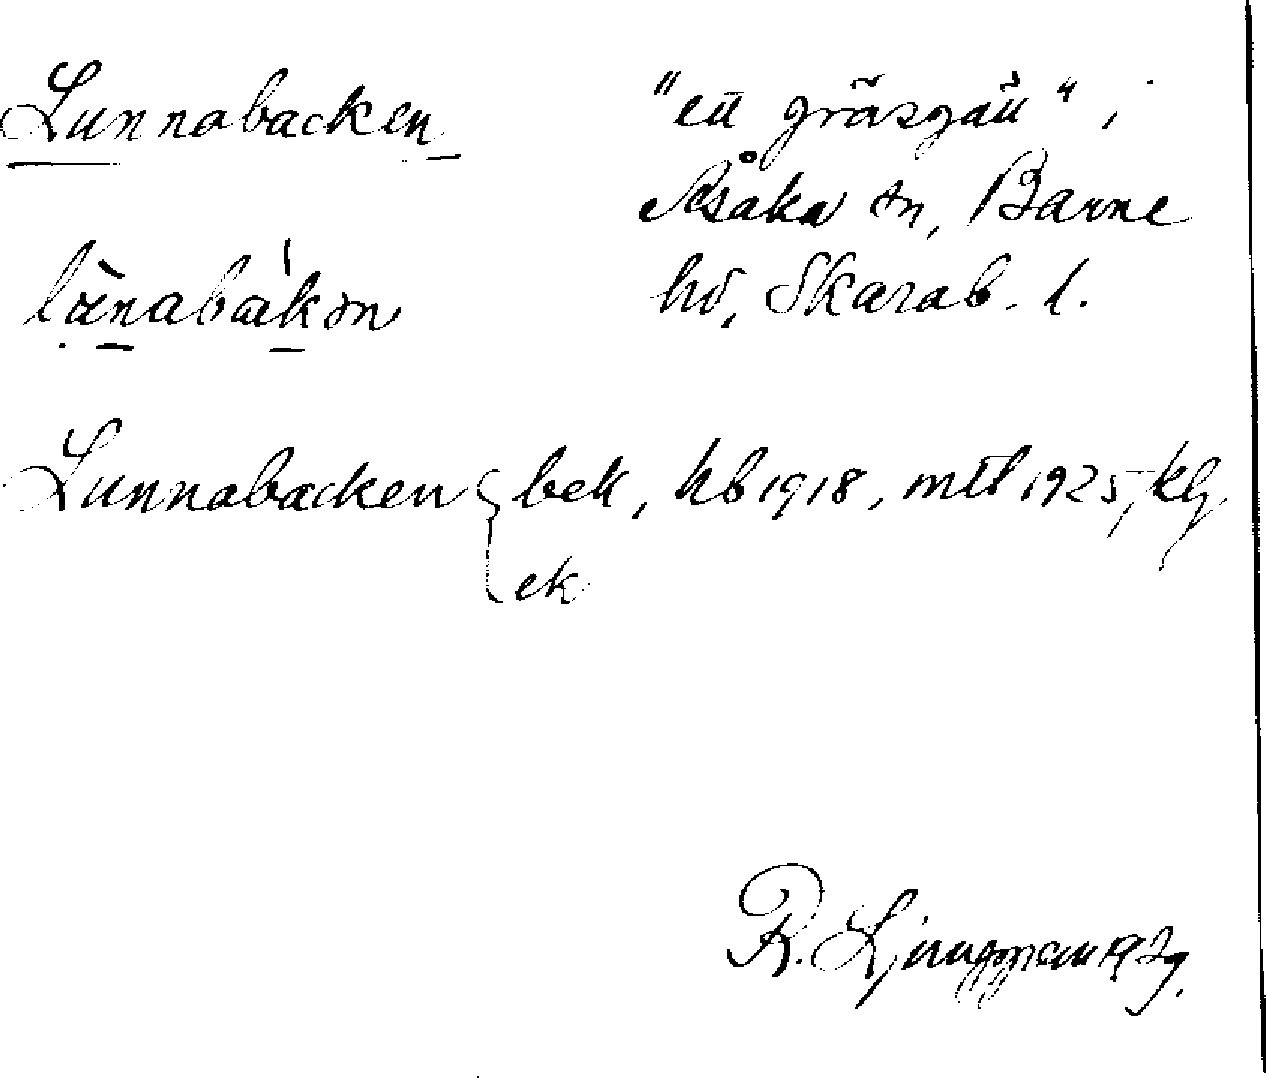 Lunnabacken
"ett gräsgäll" i
Åsaka sn, Barne
hd, Skarab. l.
lùnabákən
Lunnabacken { bek, kb 1918, mtl 1925, klg
ek
R. Ljungman 1929.